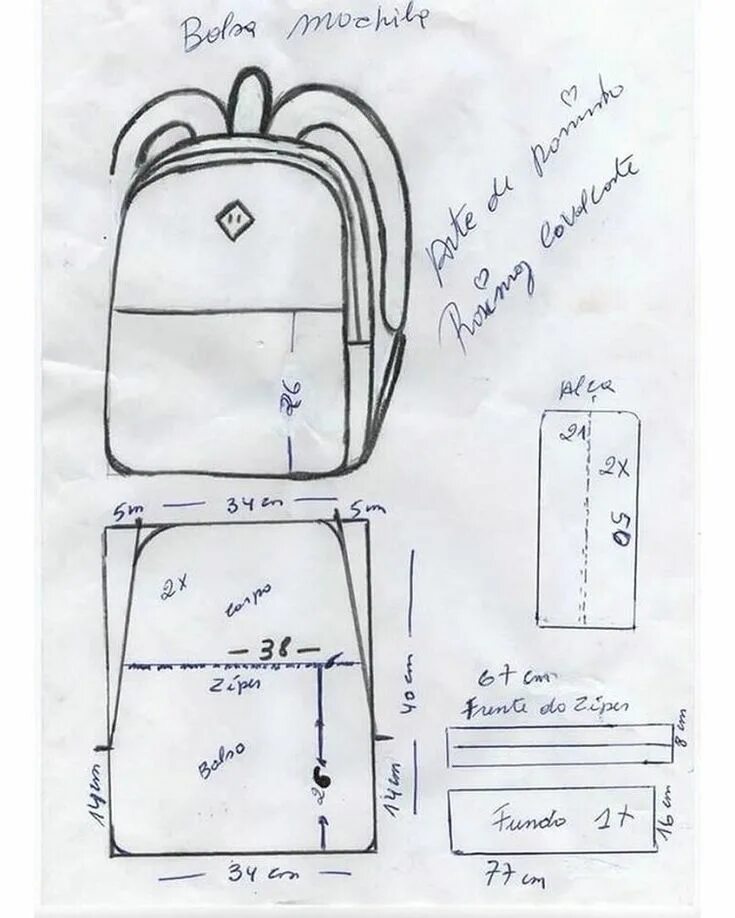 Bolsa mochila
Arte de
Rosimay Cavalcante
26
Alça
21
2x
50
5m — 34 cm — 5m
2x
corpo
— 38 —
Ziper
40 cm
Bolso
26
14cm
14cm
— 34 cm —
67 cm
Frente do Ziper
8 cm
Fundo 1x
16 cm
77 cm